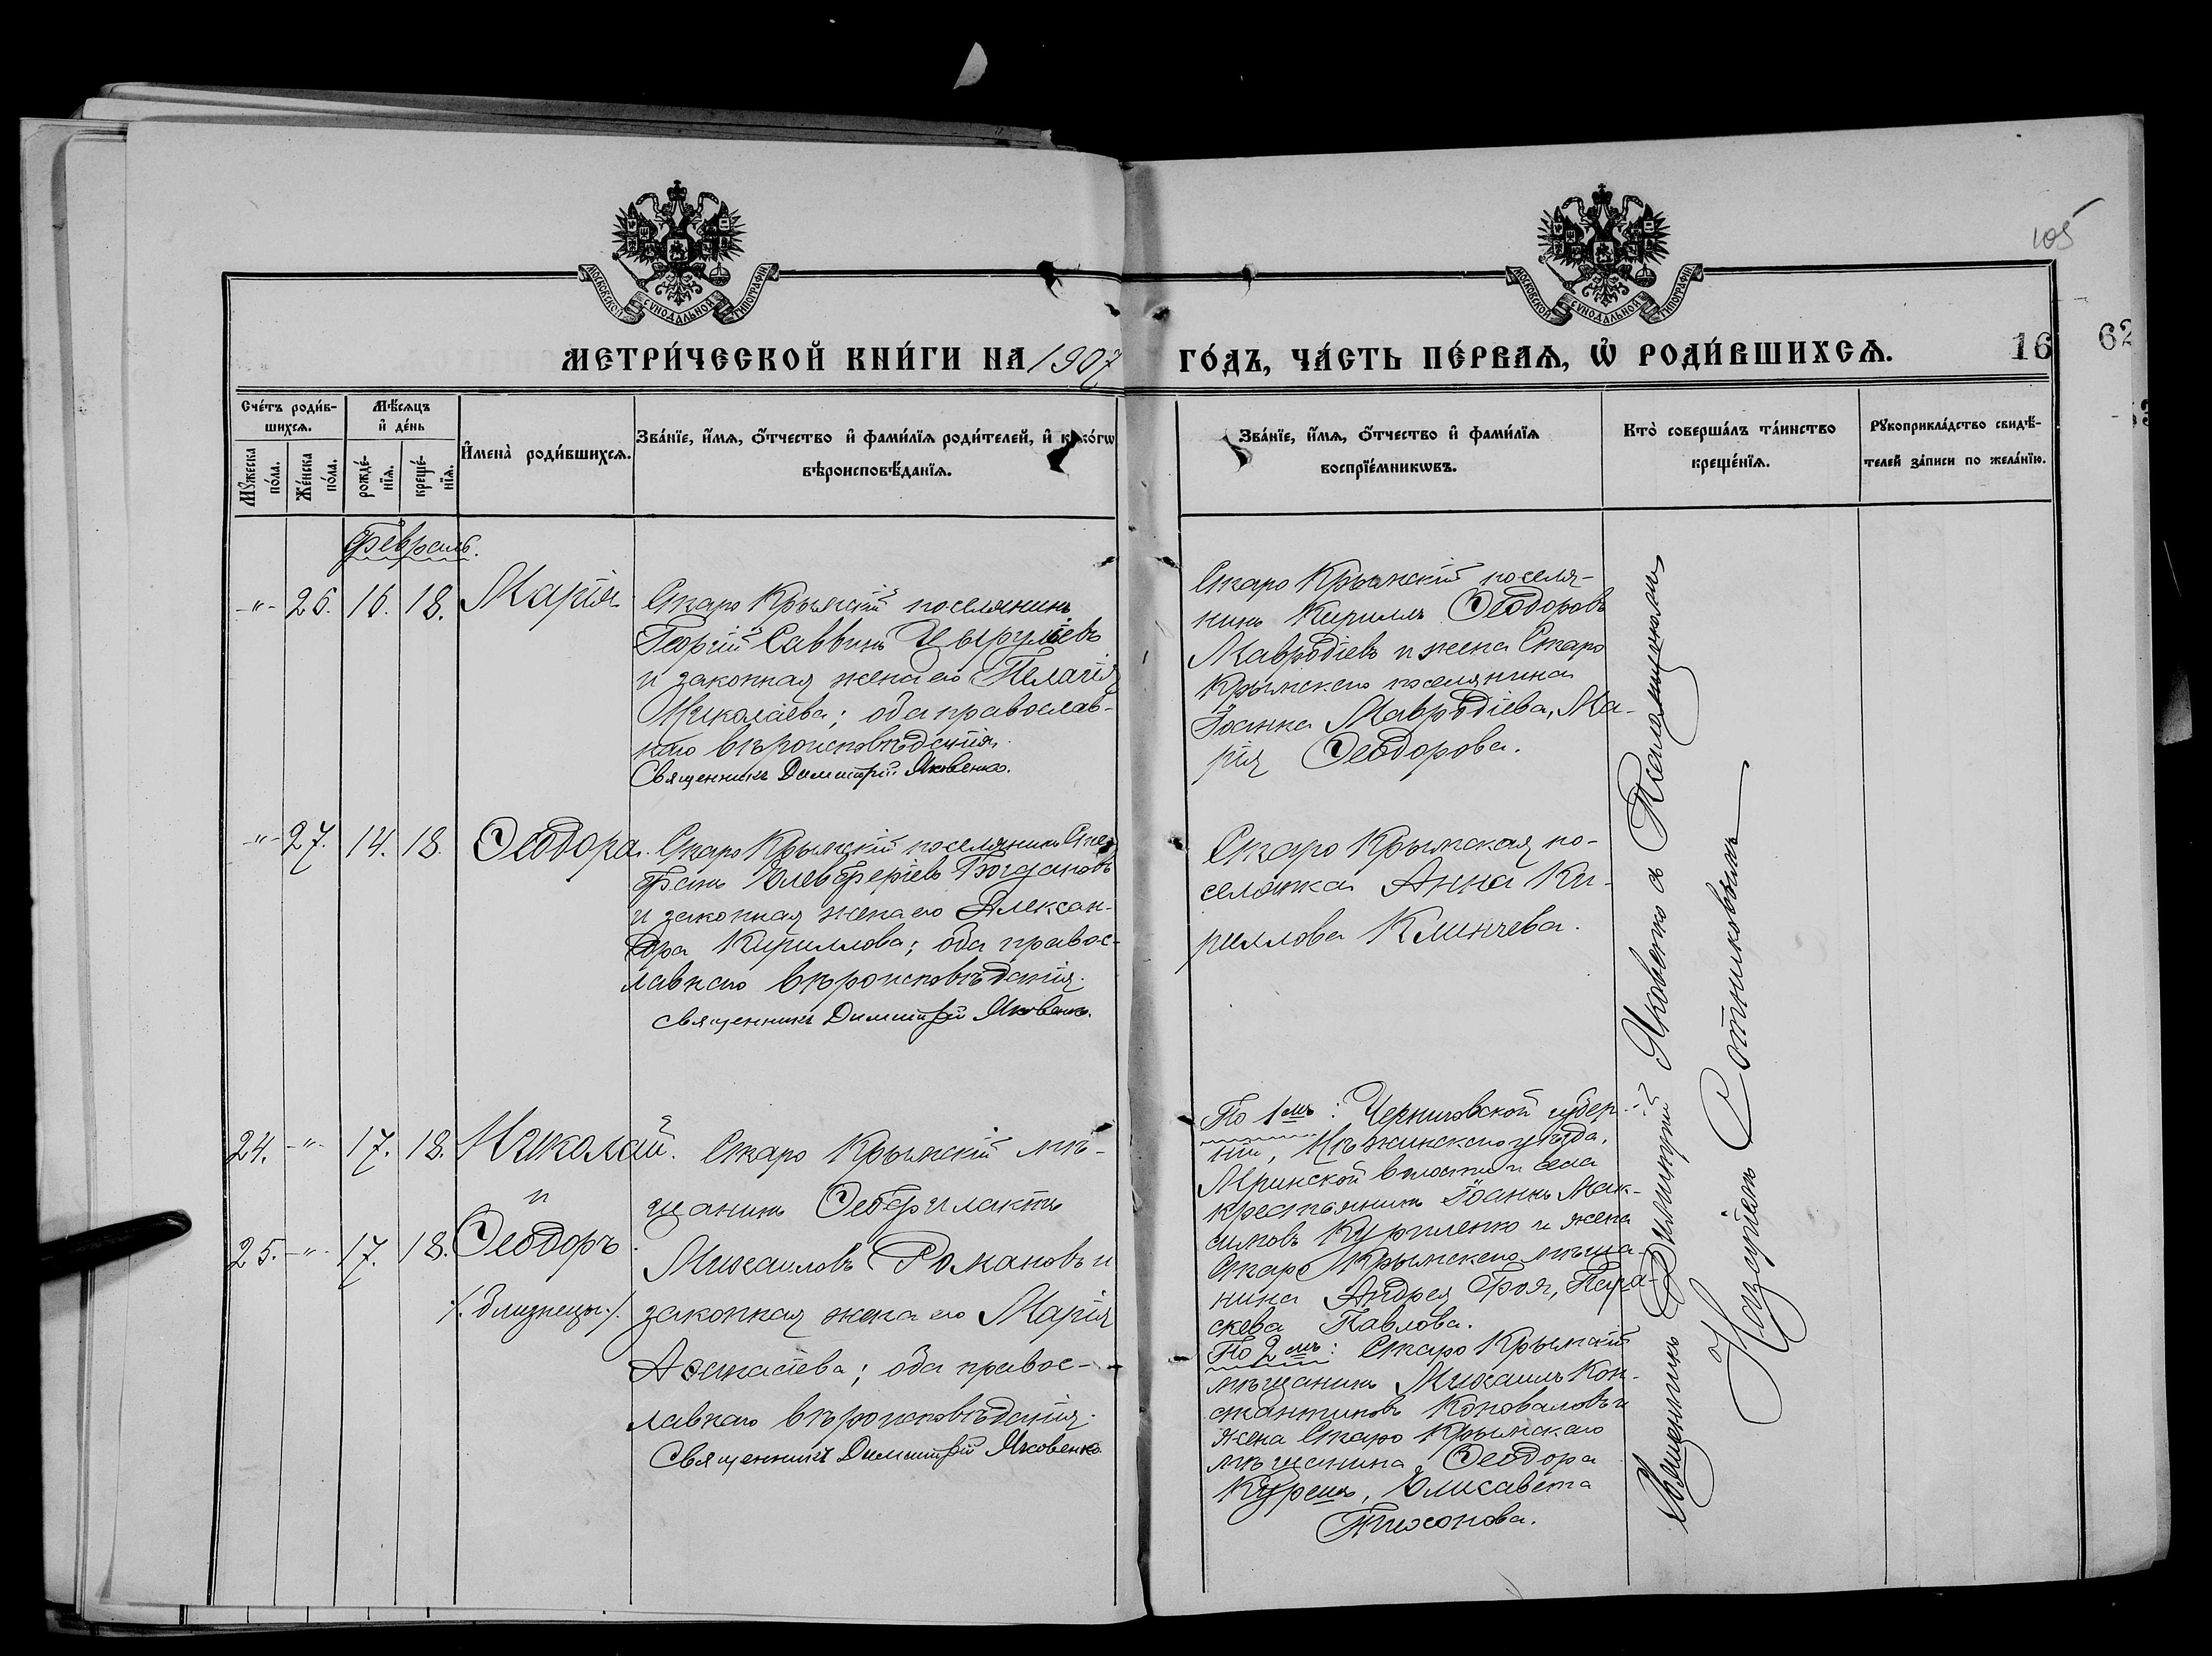 105
МОСКОВСКОЙ СУНОДАЛЬНОЙ ТИПОГРАФІИ
МОСКОВСКОЙ СУНОДАЛЬНОЙ ТИПОГРАФІИ
МЕТРИ́ЧЕСКОЙ КНИ́ГИ НА 1907 ГО́ДЪ, ЧА́СТЬ ПЕ́РВАѦ, Ѡ҆ РОДИ́ВШИХСѦ.
16
62
Сче́тъ роди́в-
шихсѧ.
Мꙋ́жеска
по́ла.
Же́нска
по́ла.
Мѣ́сѧцъ
и҆ де́нь
рожде́-
нїѧ.
креще́-
нїѧ.
И҆мена̀ роди́вшихсѧ.
Зва́нїе, и҆́мѧ, ѻ҆́тчество и҆ фами́лїѧ роди́телей, и҆ како́гѡ
вѣроисповѣ́данїѧ.
Зва́нїе, и҆́мѧ, ѻ҆́тчество и҆ фами́лїѧ
воспрїе́мникѡвъ.
Кто̀ соверша́лъ та́инство
креще́нїѧ.
Рꙋкоприкла́дство свидѣ́-
телей за́писи по жела́нїю.
Февраль.
-"- 26. 16. 18. Марія
Старо Крымскій поселянинъ
Георгій Саввинъ
и законная жена его Пелагія
Николаева; оба православ-
наго вѣроисповѣданія.
Священникъ Димитрій Яковенко.
Старо Крымскій поселя-
нинъ Кириллъ Ѳеодоровъ
Мавродіевъ и жена Старо
Крымскаго поселянина
Іоанна Мавродіева, Ма-
рія Ѳеодорова.
-"- 27. 14. 18. Ѳеодора.
Старо Крымскій поселянинъ Сте-
фанъ Елевферіевъ Богдановъ
и законная жена его Алексан-
дра Кириллова; оба правос-
лавнаго вѣроисповѣданія.
Священникъ Димитрій Яковенко.
Старо Крымская по-
селянка Анна Ки-
риллова Клинчева.
24. -"- 17. 18. Николай.
и
25. -"- 17. 18. Ѳеодоръ
/. близнецы ./
Старо Крымскій мѣ-
щанинъ Ѳеофилактъ
Михаиловъ Романовъ и
законная жена его Марія
Аѳанасіева; оба правос-
лавнаго вѣроисповѣданія.
Священникъ Димитрій Яковенко
По 1мъ: Черниговской губер-
ніи, Нѣжинскаго уѣзда,
Мринской волости и села
крестьянинъ Іоаннъ Мак-
симовъ Куриленко и жена
Старо Крымскаго мѣща-
нина Андрея Пара-
скева Павлова.
По 2мъ: Старо Крымскій
мѣщанинъ Михаилъ Кон-
стантиновъ Коноваловъ и
жена Старо Крымскаго
мѣщанина Ѳеодора
Елисавета
Тихонова.
Священникъ Димитрій Яковенко съ Псаломщикомъ
Сотниковымъ